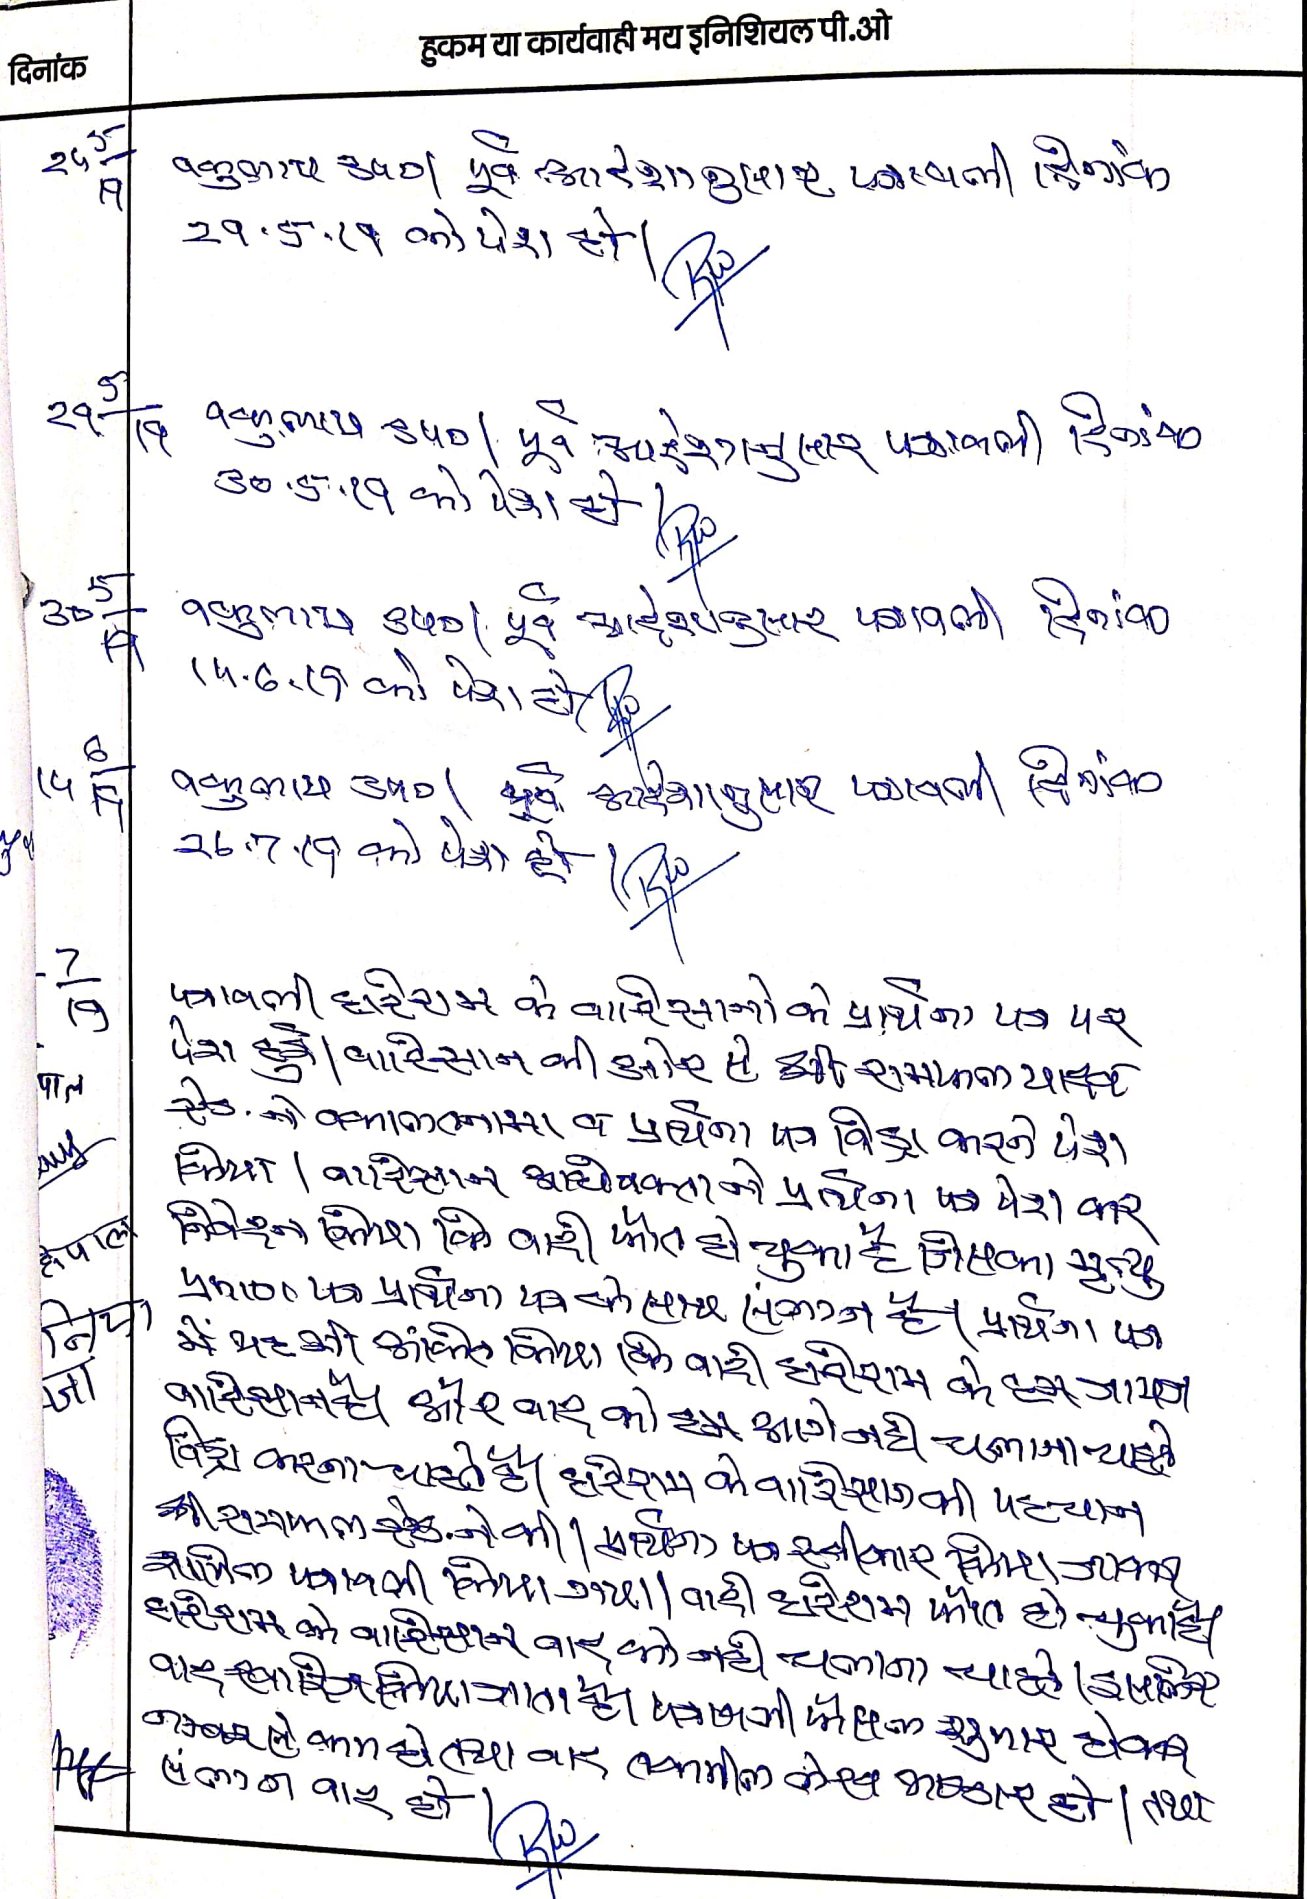 हुकम या कार्यवाही मय इनिशियल पी.ओ
दिनांक
24 5/19 वकुलाय उप0। पूर्व आदेशानुसार पत्रावली दिनांक
29.5.19 को पेश हो।
29 5/19 वकुलाय उप0। पूर्व आदेशानुसार पत्रावली दिनांक
30.5.19 को पेश हो।
30 5/19 वकुलाय उप0। पूर्व आदेशानुसार पत्रावली दिनांक
14.6.19 को पेश हो।
14 6/19 वकुलाय उप0। पूर्व आदेशानुसार पत्रावली दिनांक
26.7.19 को पेश हो।
7/19
पत्रावली हरिराम के वारिसानो के प्रार्थना पत्र पर
पेश हुई। वारिसान की ओर से श्री रामफल यादव
एड. ने वकालतनामा व प्रार्थना पत्र विड्रा करने पेश
किया। वारिसान अधिवक्ता ने प्रार्थना पत्र पेश कर
निवेदन किया कि वादी फौत हो चुका है जिसका मृत्यु
प्रमाण पत्र प्रार्थना पत्र के साथ संलग्न है। प्रार्थना पत्र
में यह भी अंकित किया कि वादी हरिराम के हम जायज
वारिसान है और वाद को हम आगे नही चलाना चाहते
विड्रा करना चाहते है। हरिराम के वारिसान की पहचान
श्री रामफल एड. ने की। प्रार्थना पत्र स्वीकार किया जाकर
शामिल पत्रावली किया गया। वादी हरिराम फौत हो चुका है
हरिराम के वारिसान वाद को नही चलाना चाहते। इसलिए
वाद खारिज किया जाता है। पत्रावली फैसल शुमार होकर
नम्बर से कम हो तथा वाद तकमील लेख भण्डार हो। तथा
संलग्न वाद हो।
पाल
निया
जा